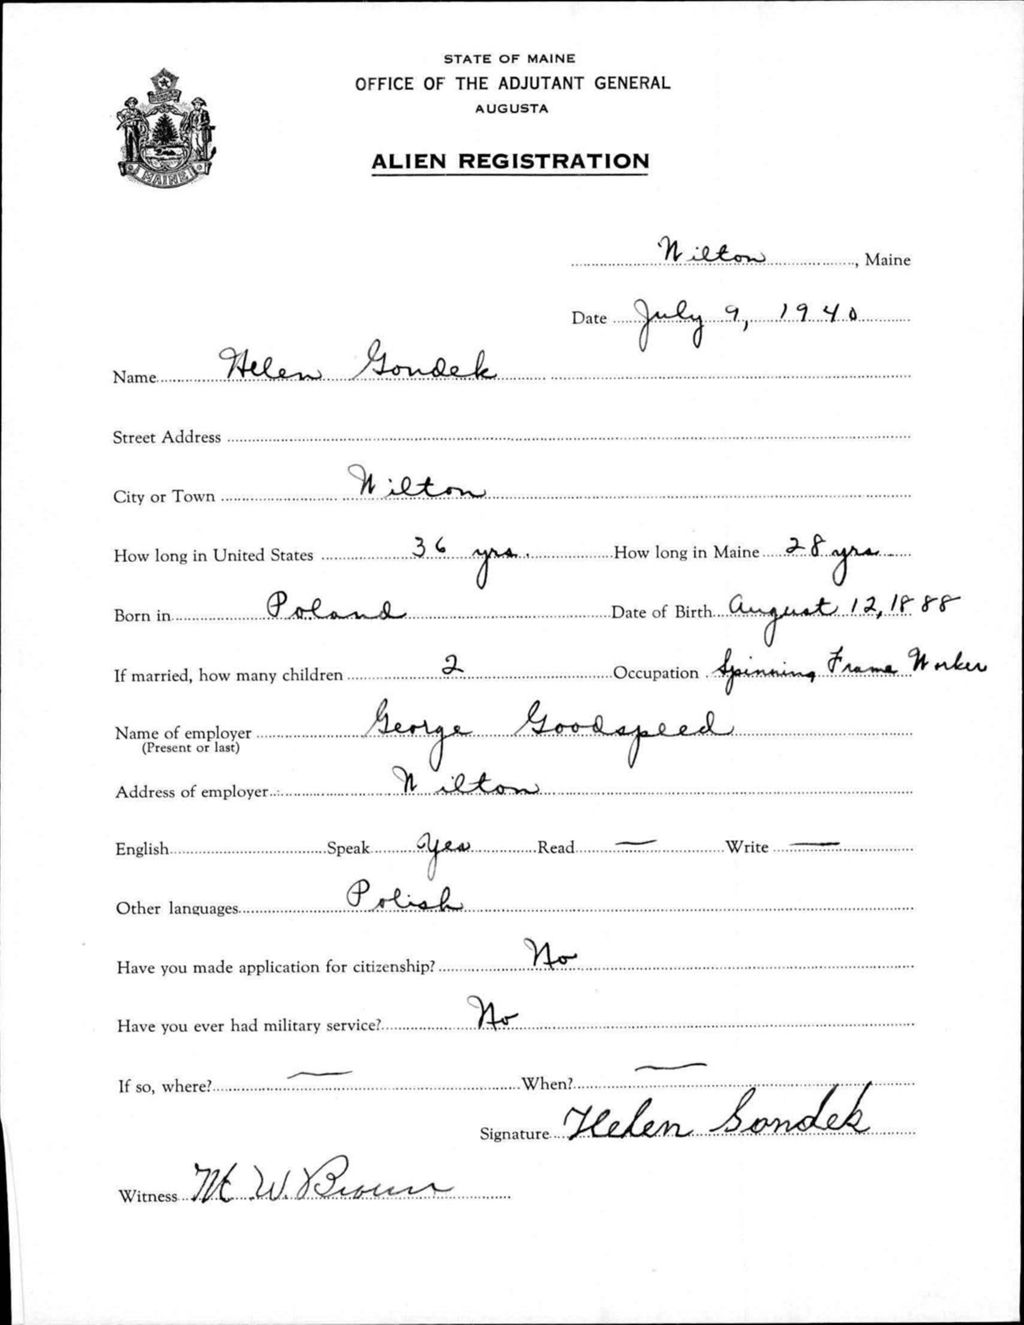 STATE OF MAINE
OFFICE OF THE ADJUTANT GENERAL
AUGUSTA
ALIEN REGISTRATION
MAINE
Wilton, Maine
Date July 9, 1940
Name Helen Gondek
Street Address
City or Town Wilton
How long in United States 36 yrs. How long in Maine 28 yrs
Born in Poland Date of Birth August 12, 1888
If married, how many children 2 Occupation Spinning Frame Worker
Name of employer George Goodspeed
(Present or last)
Address of employer Wilton
English Speak Yes Read — Write —
Other languages Polish
Have you made application for citizenship? No
Have you ever had military service? No
If so, where? — When? —
Signature Helen Gondek
Witness M. W. Brown